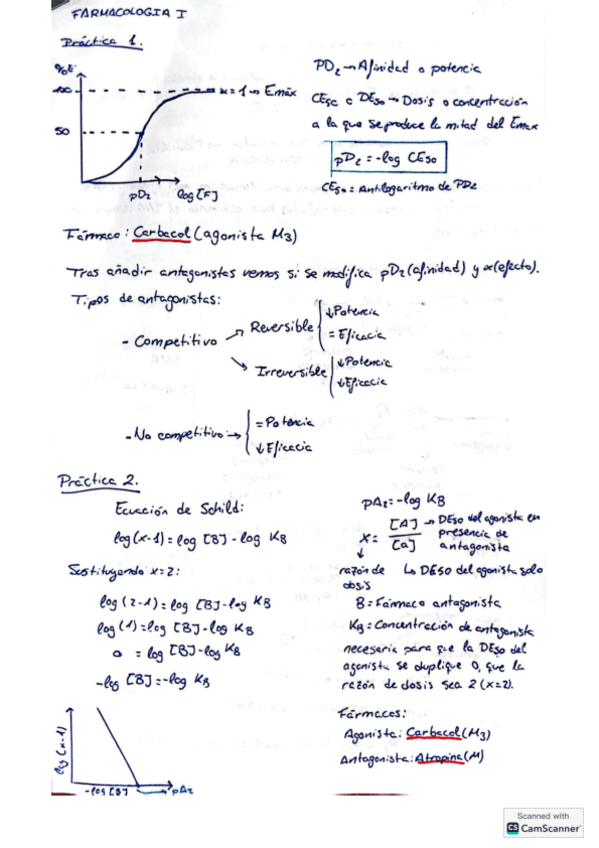 FARMACOLOGIA I
Práctica 1.
%E
100
α=1 → Emáx
50
pD2
log [F]
PD2 → Afinidad o potencia
CE50 o DE50 → Dosis o concentración
a la que se produce la mitad del Emax
pD2 = -log CE50
CE50 = Antilogaritmo de PD2
Fármaco: Carbacol (agonista M3)
Tras añadir antagonistas vemos si se modifica pD2 (afinidad) y α (efecto).
Tipos de antagonistas:
- Competitivo
Reversible
↓ Potencia
= Eficacia
Irreversible
↓ Potencia
↓ Eficacia
- No competitivo →
= Potencia
↓ Eficacia
Práctica 2.
Ecuación de Schild:
log (x-1) = log [B] - log KB
Sustituyendo x=2:
log (2-1) = log [B] - log KB
log (1) = log [B] - log KB
0 = log [B] - log KB
-log [B] = -log KB
log (x-1)
-log [B]
pA2
pA2 = -log KB
x = [A] / [a]
→ DE50 del agonista en
presencia de
antagonista
razón de
dosis
↳ DE50 del agonista solo
B = Fármaco antagonista
KB = Concentración de antagonista
necesaria para que la DE50 del
agonista se duplique o, que la
razón de dosis sea 2 (x=2).
Fármacos:
Agonista: Carbacol (M3)
Antagonista: Atropina (M)
Scanned with
CS CamScanner